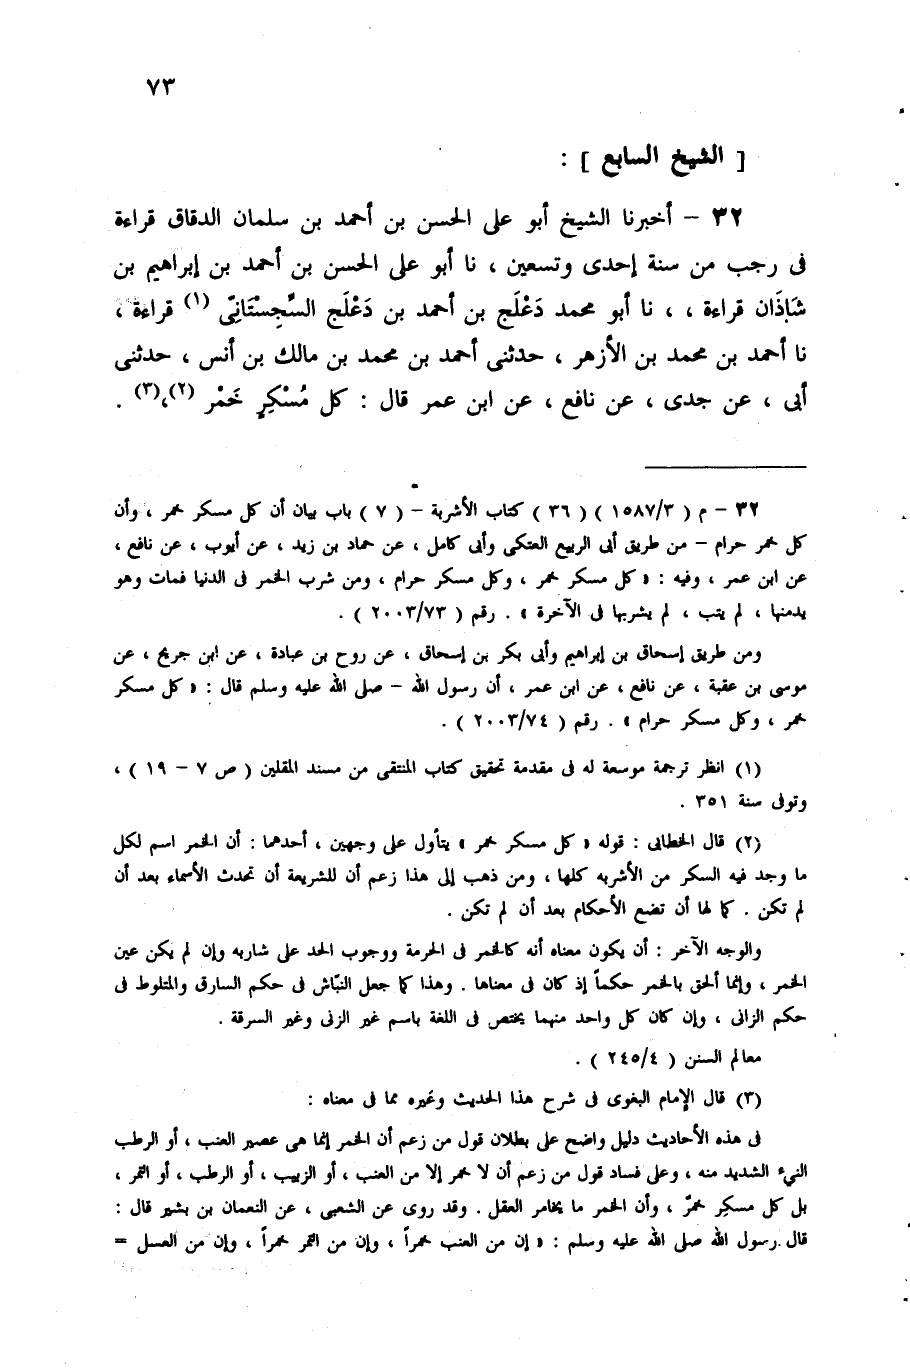 ٧٣
[ الشيخ السابع ] :
٣٢ – أخبرنا الشيخ أبو على الحسن بن أحمد بن سلمان الدقاق قراءة
فى رجب من سنة إحدى وتسعين ، نا أبو على الحسن بن أحمد بن إبراهيم بن
شَاذَان قراءة ، ، نا أبو محمد دَعْلَج بن أحمد بن دَعْلَج السِّجِسْتَانِىّ (١) قراءة ،
نا أحمد بن محمد بن الأزهر ، حدثنى أحمد بن محمد بن مالك بن أنس ، حدثنى
أبى ، عن جدى ، عن نافع ، عن ابن عمر قال : كل مُسْكِرٍ خَمْر (٢)،(٣) .
٣٢ – م ( ١٥٨٧/٣ ) ( ٣٦ ) كتاب الأشربة – ( ٧ ) باب بيان أن كل مسكر خمر ، وأن
كل خمر حرام – من طريق أبى الربيع العتكى وأبى كامل ، عن حماد بن زيد ، عن أيوب ، عن نافع ،
عن ابن عمر ، وفيه : « كل مسكر خمر ، وكل مسكر حرام ، ومن شرب الخمر فى الدنيا فمات وهو
يدمنها ، لم يتب ، لم يشربها فى الآخرة » . رقم ( ٢٠٠٣/٧٣ ) .
ومن طريق إسحاق بن إبراهيم وأبى بكر بن إسحاق ، عن روح بن عبادة ، عن ابن جريج ، عن
موسى بن عقبة ، عن نافع ، عن ابن عمر ، أن رسول الله – صلى الله عليه وسلم قال : « كل مسكر
خمر ، وكل مسكر حرام » . رقم ( ٢٠٠٣/٧٤ ) .
(١) انظر ترجمة موسعة له فى مقدمة تحقيق كتاب المنتقى من مسند المقلين ( ص ٧ – ١٩ ) ،
وتوفى سنة ٣٥١ .
(٢) قال الخطابى : قوله « كل مسكر خمر » يتأول على وجهين ، أحدهما : أن الخمر اسم لكل
ما وجد فيه السكر من الأشربه كلها ، ومن ذهب إلى هذا زعم أن للشريعة أن تحدث الأسماء بعد أن
لم تكن . كما لها أن تضع الأحكام بعد أن لم تكن .
والوجه الآخر : أن يكون معناه أنه كالخمر فى الحرمة ووجوب الحد على شاربه وإن لم يكن عين
الخمر ، وإنما ألحق بالخمر حكماً إذ كان فى معناها . وهذا كما جعل النبّاش فى حكم السارق والمتلوط فى
حكم الزانى ، وإن كان كل واحد منهما يختص فى اللغة باسم غير الزنى وغير السرقة .
معالم السنن ( ٢٤٥/٤ ) .
(٣) قال الإمام البغوى فى شرح هذا الحديث وغيره مما فى معناه :
فى هذه الأحاديث دليل واضح على بطلان قول من زعم أن الخمر إنما هى عصير العنب ، أو الرطب
النيء الشديد منه ، وعلى فساد قول من زعم أن لا خمر إلا من العنب ، أو الزبيب ، أو الرطب ، أو التمر ،
بل كل مسكِر خمرٌ ، وأن الخمر ما يخامر العقل . وقد روى عن الشعبى ، عن النعمان بن بشير قال :
قال رسول الله صلى الله عليه وسلم : « إن من العنب خمراً ، وإن من التمر خمراً ، وإن من العسل =